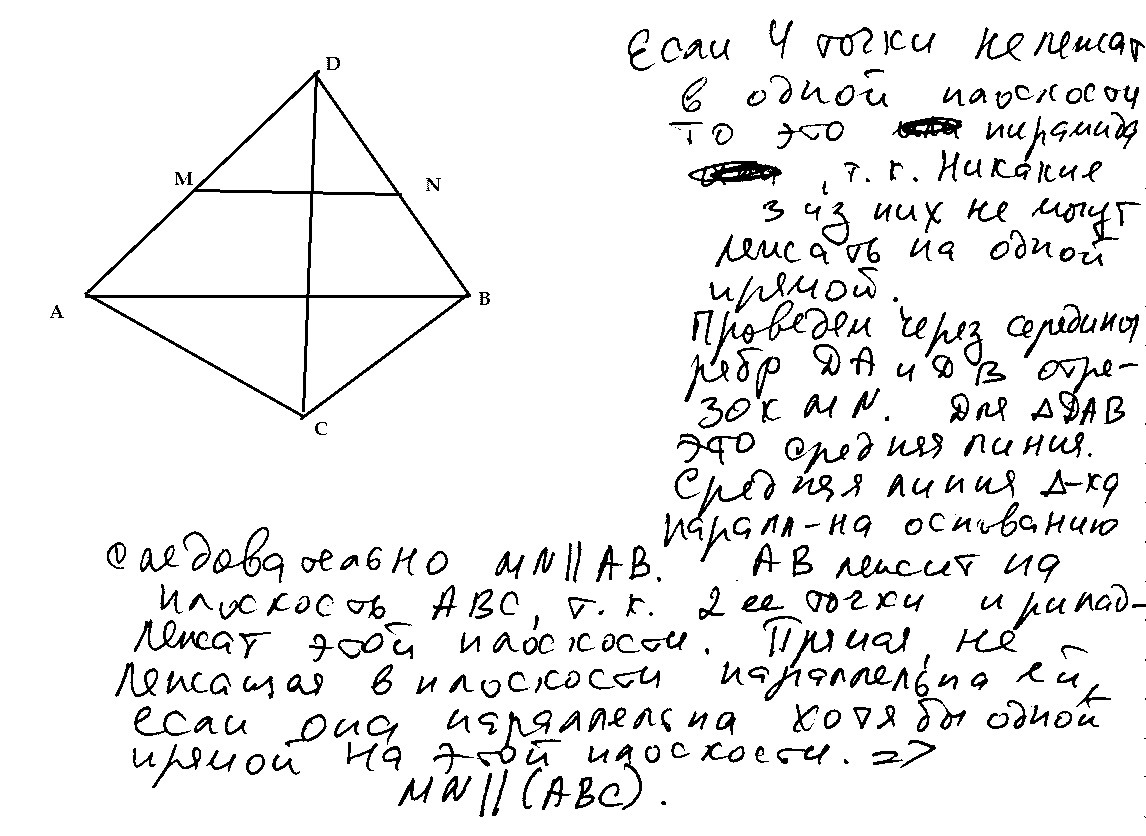 D
M
N
A
B
C
Если 4 точки не лежат
в одной плоскости
то это пирамида
, т.к. Никакие
3 из них не могут
лежать на одной
прямой.
Проведем через середины
ребр DA и DB отре-
зок MN. Для ΔDAB
это средняя линия.
Средняя линия Δ-ка
паралл-на основанию
Следовательно MN||AB. AB лежит на
плоскость ABC, т.к. 2 ее точки принад-
лежат этой плоскости. Прямая, не
лежащая в плоскости параллельна ей,
если она параллельна хотя бы одной
прямой на этой плоскости. =>
MN||(ABC).